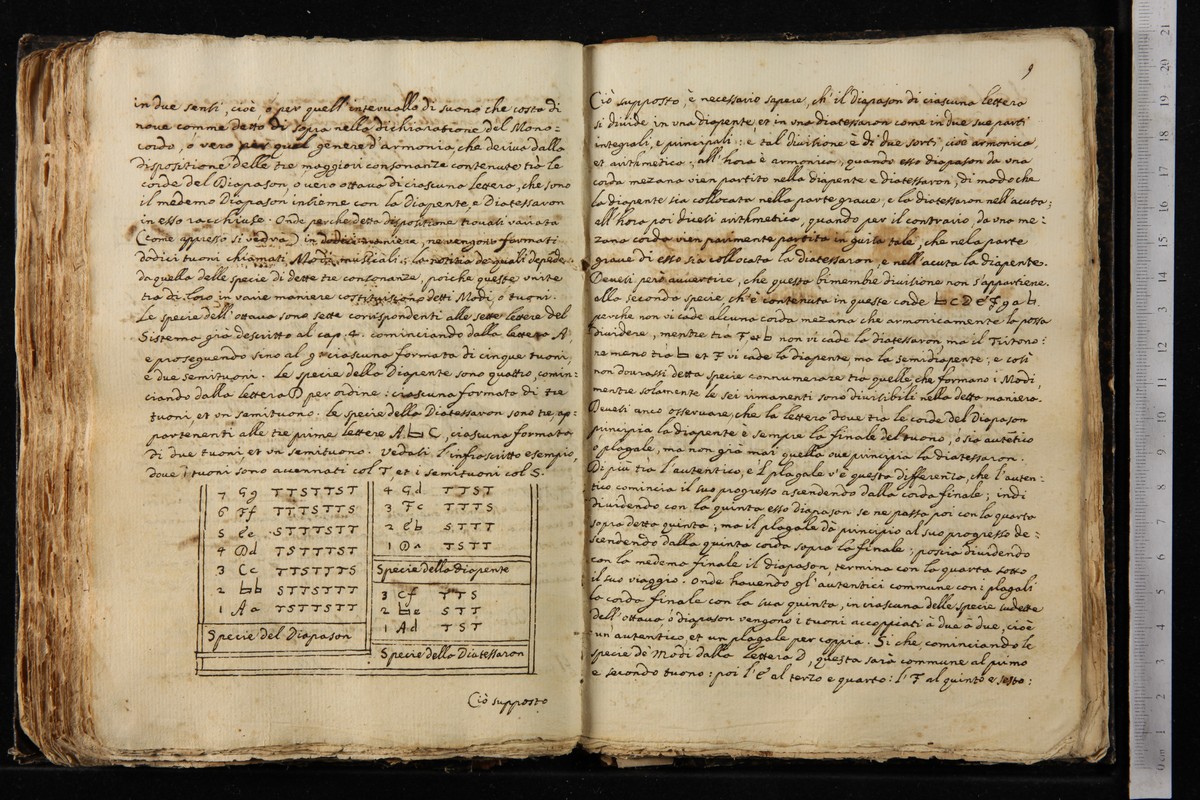 in due sensi, cioè o per quell'intervallo di suono che costa di
nove comme detto di sopra nella dichiaratione del Mono=
cordo, o vero per quel genere d'armonia, che deriva dalla
dispositione delle tre maggiori consonanze contenute trà le
corde del Diapason, o uero ottava di ciascuna lettera, che sono
il medemo Diapason insieme con la Diapente, e Diatessaron
in esso racchiuse. Onde perche detta dispositione trouasi variata
(come appresso si vedrà) in dodici maniere, ne vengono formati
dodici tuoni chiamati Modi musicali; la notitia de quali depende
da quella delle specie di dette tre consonanze, poiche queste unite
trà di loro in varie maniere costituiscono detti Modi, ò tuoni.
Le specie dell'ottava sono sette corrispondenti alle sette lettere del
Sistema già descritto al cap. 4. cominciando dalla lettera A,
e proseguendo sino al g: ciascuna formata di cinque tuoni,
e due semituoni. Le specie della Diapente sono quattro, comin=
ciando dalla lettera D per ordine: ciascuna formata di tre
tuoni, et vn semituono. Le specie della Diatessaron sono tre, ap=
partenenti alle tre prime lettere A ♮ C, ciascuna formata
di due tuoni et vn semituono. Vedasi l'infrascritto esempio,
dove i tuoni sono accennati col T, et i semituoni col S.
7 Gg TTSTTST
6 Ff TTTSTTS
5 Ee STTTSTT
4 Dd TSTTTST
3 Cc TTSTTTS
2 ♮♮ STTSTTT
1 Aa TSTTSTT
Specie del Diapason
4 Gd TTST
3 Fc TTTS
2 E♮ STTT
1 Da TSTT
Specie della Diapente
3 Cf TTS
2 ♮e STT
1 Ad TST
Specie della Diatessaron
Ciò supposto
9
Ciò supposto, è necessario sapere, ch'il Diapason di ciascuna lettera
si divide in vna diapente, et in vna diatessaron come in due sue parti
integrali, e principali: e tal divisione è di due sorti, cioè armonica,
et arithmetica: all'hora è armonica, quando esso diapason da vna
corda mezana vien partito nella diapente e diatessaron, di modo che
la diapente sia collocata nella parte graue, e la diatessaron nell'acuta:
all'hora poi dicesi arithmetica, quando per il contrario da vna me=
zana corda vien parimente partita in guisa tale, che nela parte
graue di esso sia collocata la diatessaron, e nell'acuta la diapente.
Deuesi però auuertire, che questa bimembre divisione non s'appartiene
alla seconda specie, ch'è contenuta in queste corde ♮ C D E F g a ♮
perche non vi cade alcuna corda mezana che armonicamente la possa
dividere, mentre trà F et ♮ non vi cade la diatessaron ma il Tritono:
ne meno trà ♮ et F vi cade la diapente ma la semidiapente; e così
non dourassi detta specie connumerare trà quelle, che formano i Modi,
mentre solamente le sei rimanenti sono divisibili nella detta maniera.
Deuesi anco osseruare, che la lettera doue trà le corde del Diapason
principia la diapente è sempre la finale del tuono, ò sia autetico
ò plagale, ma non già mai quella oue principia la diatessaron.
Di più trà l'autentico, e'l plagale v'è questa differenza, che l'auten=
tico comincia il suo progresso ascendendo dalla corda finale; indi
dividendo con la quinta esso Diapason se ne passa poi con la quarta
sopra detta quinta; ma il plagale dà principio al suo progresso de=
scendendo dalla quinta corda sopra la finale; poscia dividendo
con la medema finale il diapason, termina con la quarta sotto
il suo viaggio. Onde hauendo gl'autentici commune con i plagali
la corda finale con la sua quinta, in ciascuna delle specie sudette
dell'ottaua, ò diapason vengono i tuoni accoppiati à due à due, cioè
un autentico, et un plagale per coppia. Si che, cominciando le
specie de Modi dalla lettera D, questa sarà commune al primo
e secondo tuono: poi l'E al terzo e quarto: l'F al quinto e sesto: